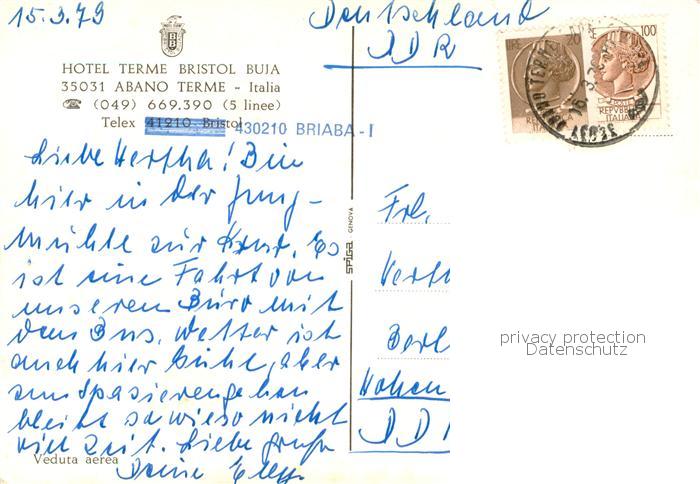 15.3.79
Deutschland
DDR
HOTEL TERME BRISTOL BUJA
35031 ABANO TERME - Italia
☎ (049) 669.390 (5 linee)
Telex 41210 Bristol
430210 BRIABA-I
Liebe Hertha! Bin
hier in der Jung-
mühle zur Kur. Es
ist eine Fahrt von
unserem Büro mit
dem Bus. Wetter ist
auch hier kühl, aber
zum Spazierengehen
bleibt sowieso nicht
viel Zeit. Liebe Grüße
Deine
Veduta aerea
SPIGA GENOVA
LIRE 70
100
REPVBBLICA
ITALIANA
Frl.
Herth
Berl
Hohen
DD
privacy protection
Datenschutz